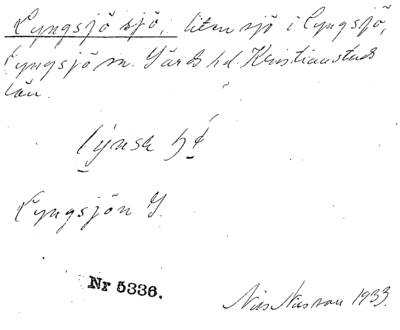 Lyngsjö sjö, liten sjö i Lyngsjö,
Lyngsjö sn. Gärds hd. Kristianstads
län.
Lyngsjön G.
Nr 5336.
Nils Nilsson 1933.